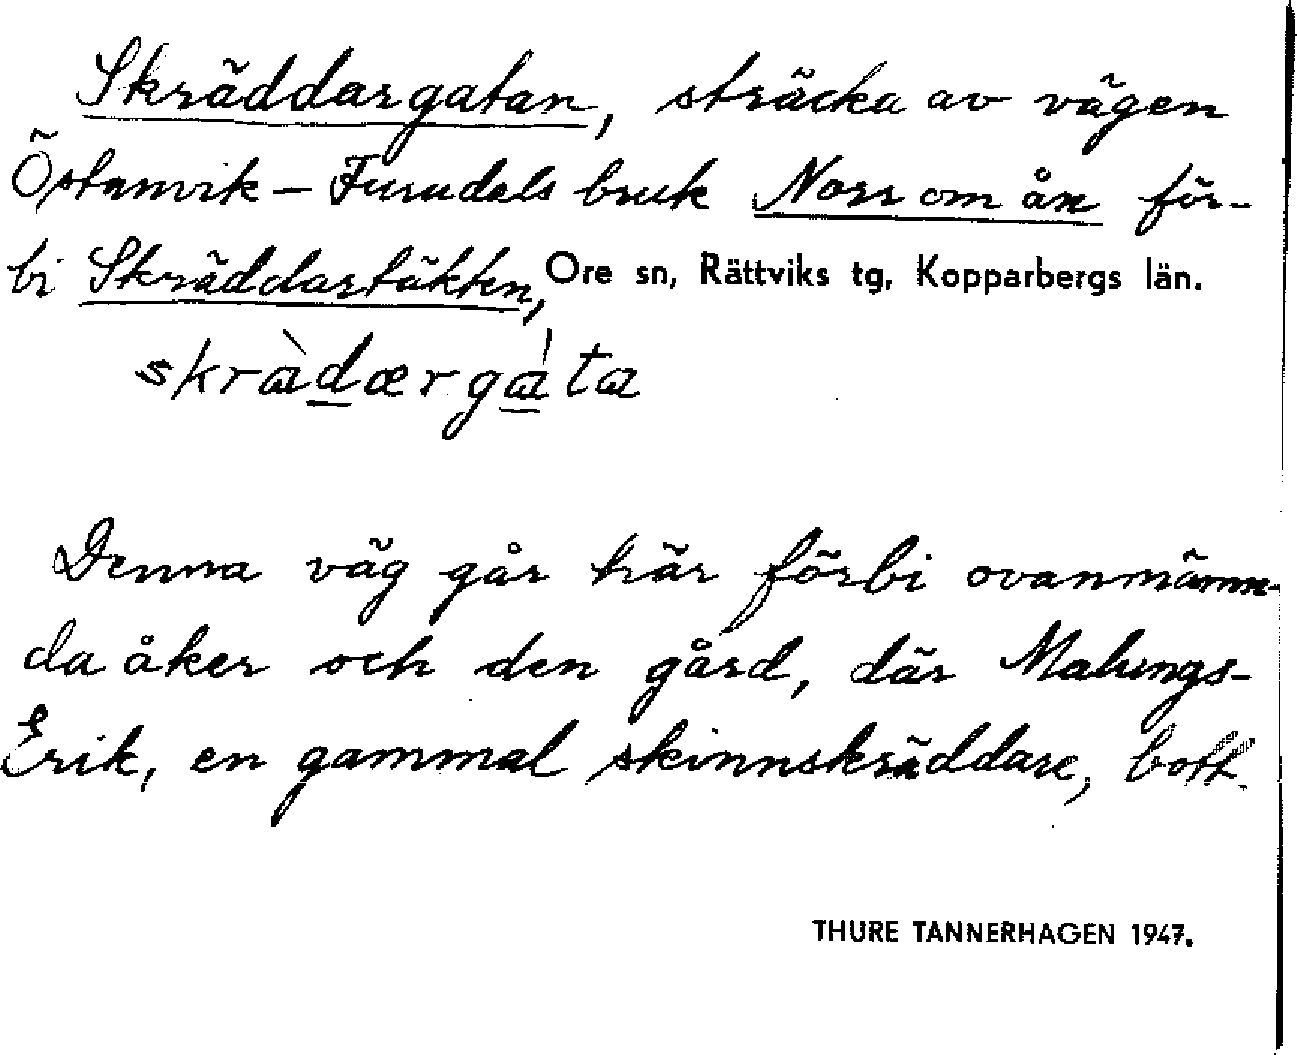 Skräddargatan, sträcka av vägen
Östanvik – Furudals bruk Norr om ån för-
bi Skräddartäkten, Ore sn, Rättviks tg, Kopparbergs län.
skràdærgáta
Denna väg går här förbi ovannämn-
da åker och den gård, där Malungs-
Erik, en gammal skinnskräddare, bott.
THURE TANNERHAGEN 1947.